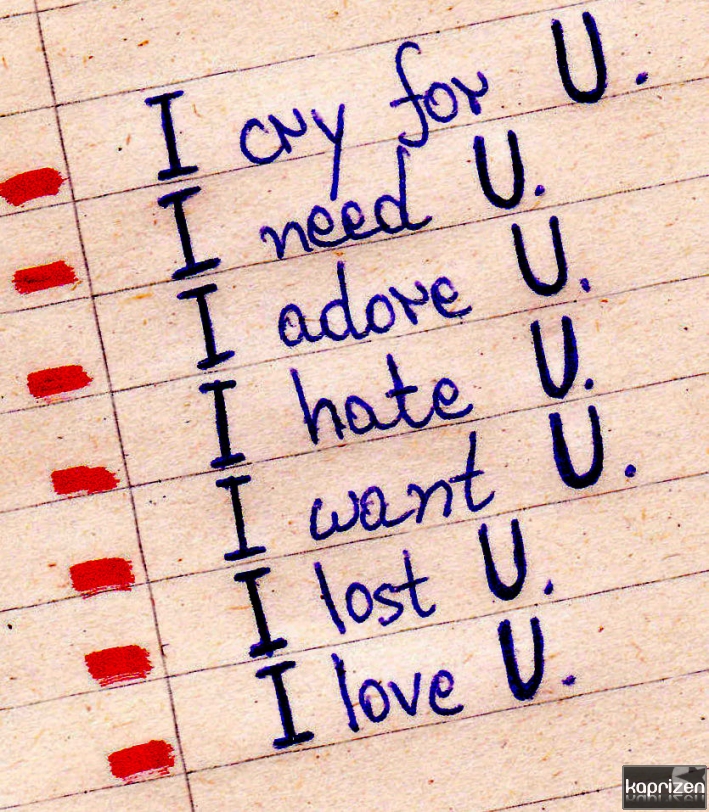 I cry for U.
I need U.
I adore U.
I hate U.
I want U.
I lost U.
I love U.
kaprizen